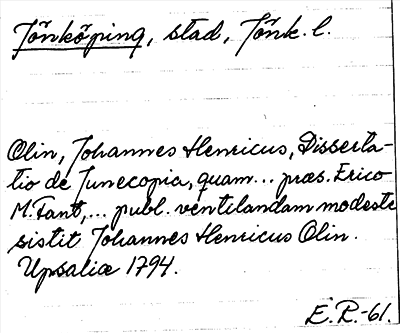 Jönköping, stad, Jönk. l.
Olin, Johannes Henricus, Disserta-
tio de Junecopia, quam... præs. Erico
M. Fant,... publ. ventilandam modeste
sistit Johannes Henricus Olin.
Upsaliæ 1794.
E. R.-61.